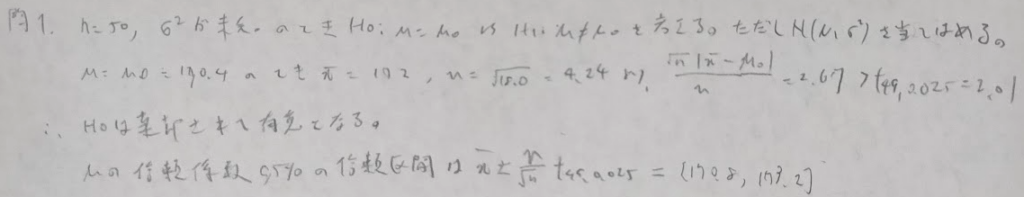 問1. n=50, σ²が未知。のとき H₀: μ=μ₀ vs H₁: μ≠μ₀ を考える。ただしN(μ,σ²)を当てはめる。
μ=μ0=170.4 のとき x̄=172, u=√18.0=4.24 より, √n|x̄-μ₀|/u=2.67>t49,0.025=2.01
∴ H0は棄却されて有意となる。
μの信頼係数95%の信頼区間は x̄±u/√n t49,0.025=[170.8, 173.2]